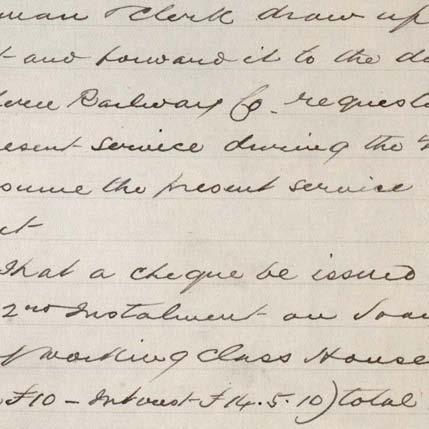 man & Clerk draw up
and forward it to the d
Railway Co. request
esent service during the
sume the present service
t
That a cheque be issued
2nd Instalment on Loan
Working Class House
£10 – Interest £14.5.10) total